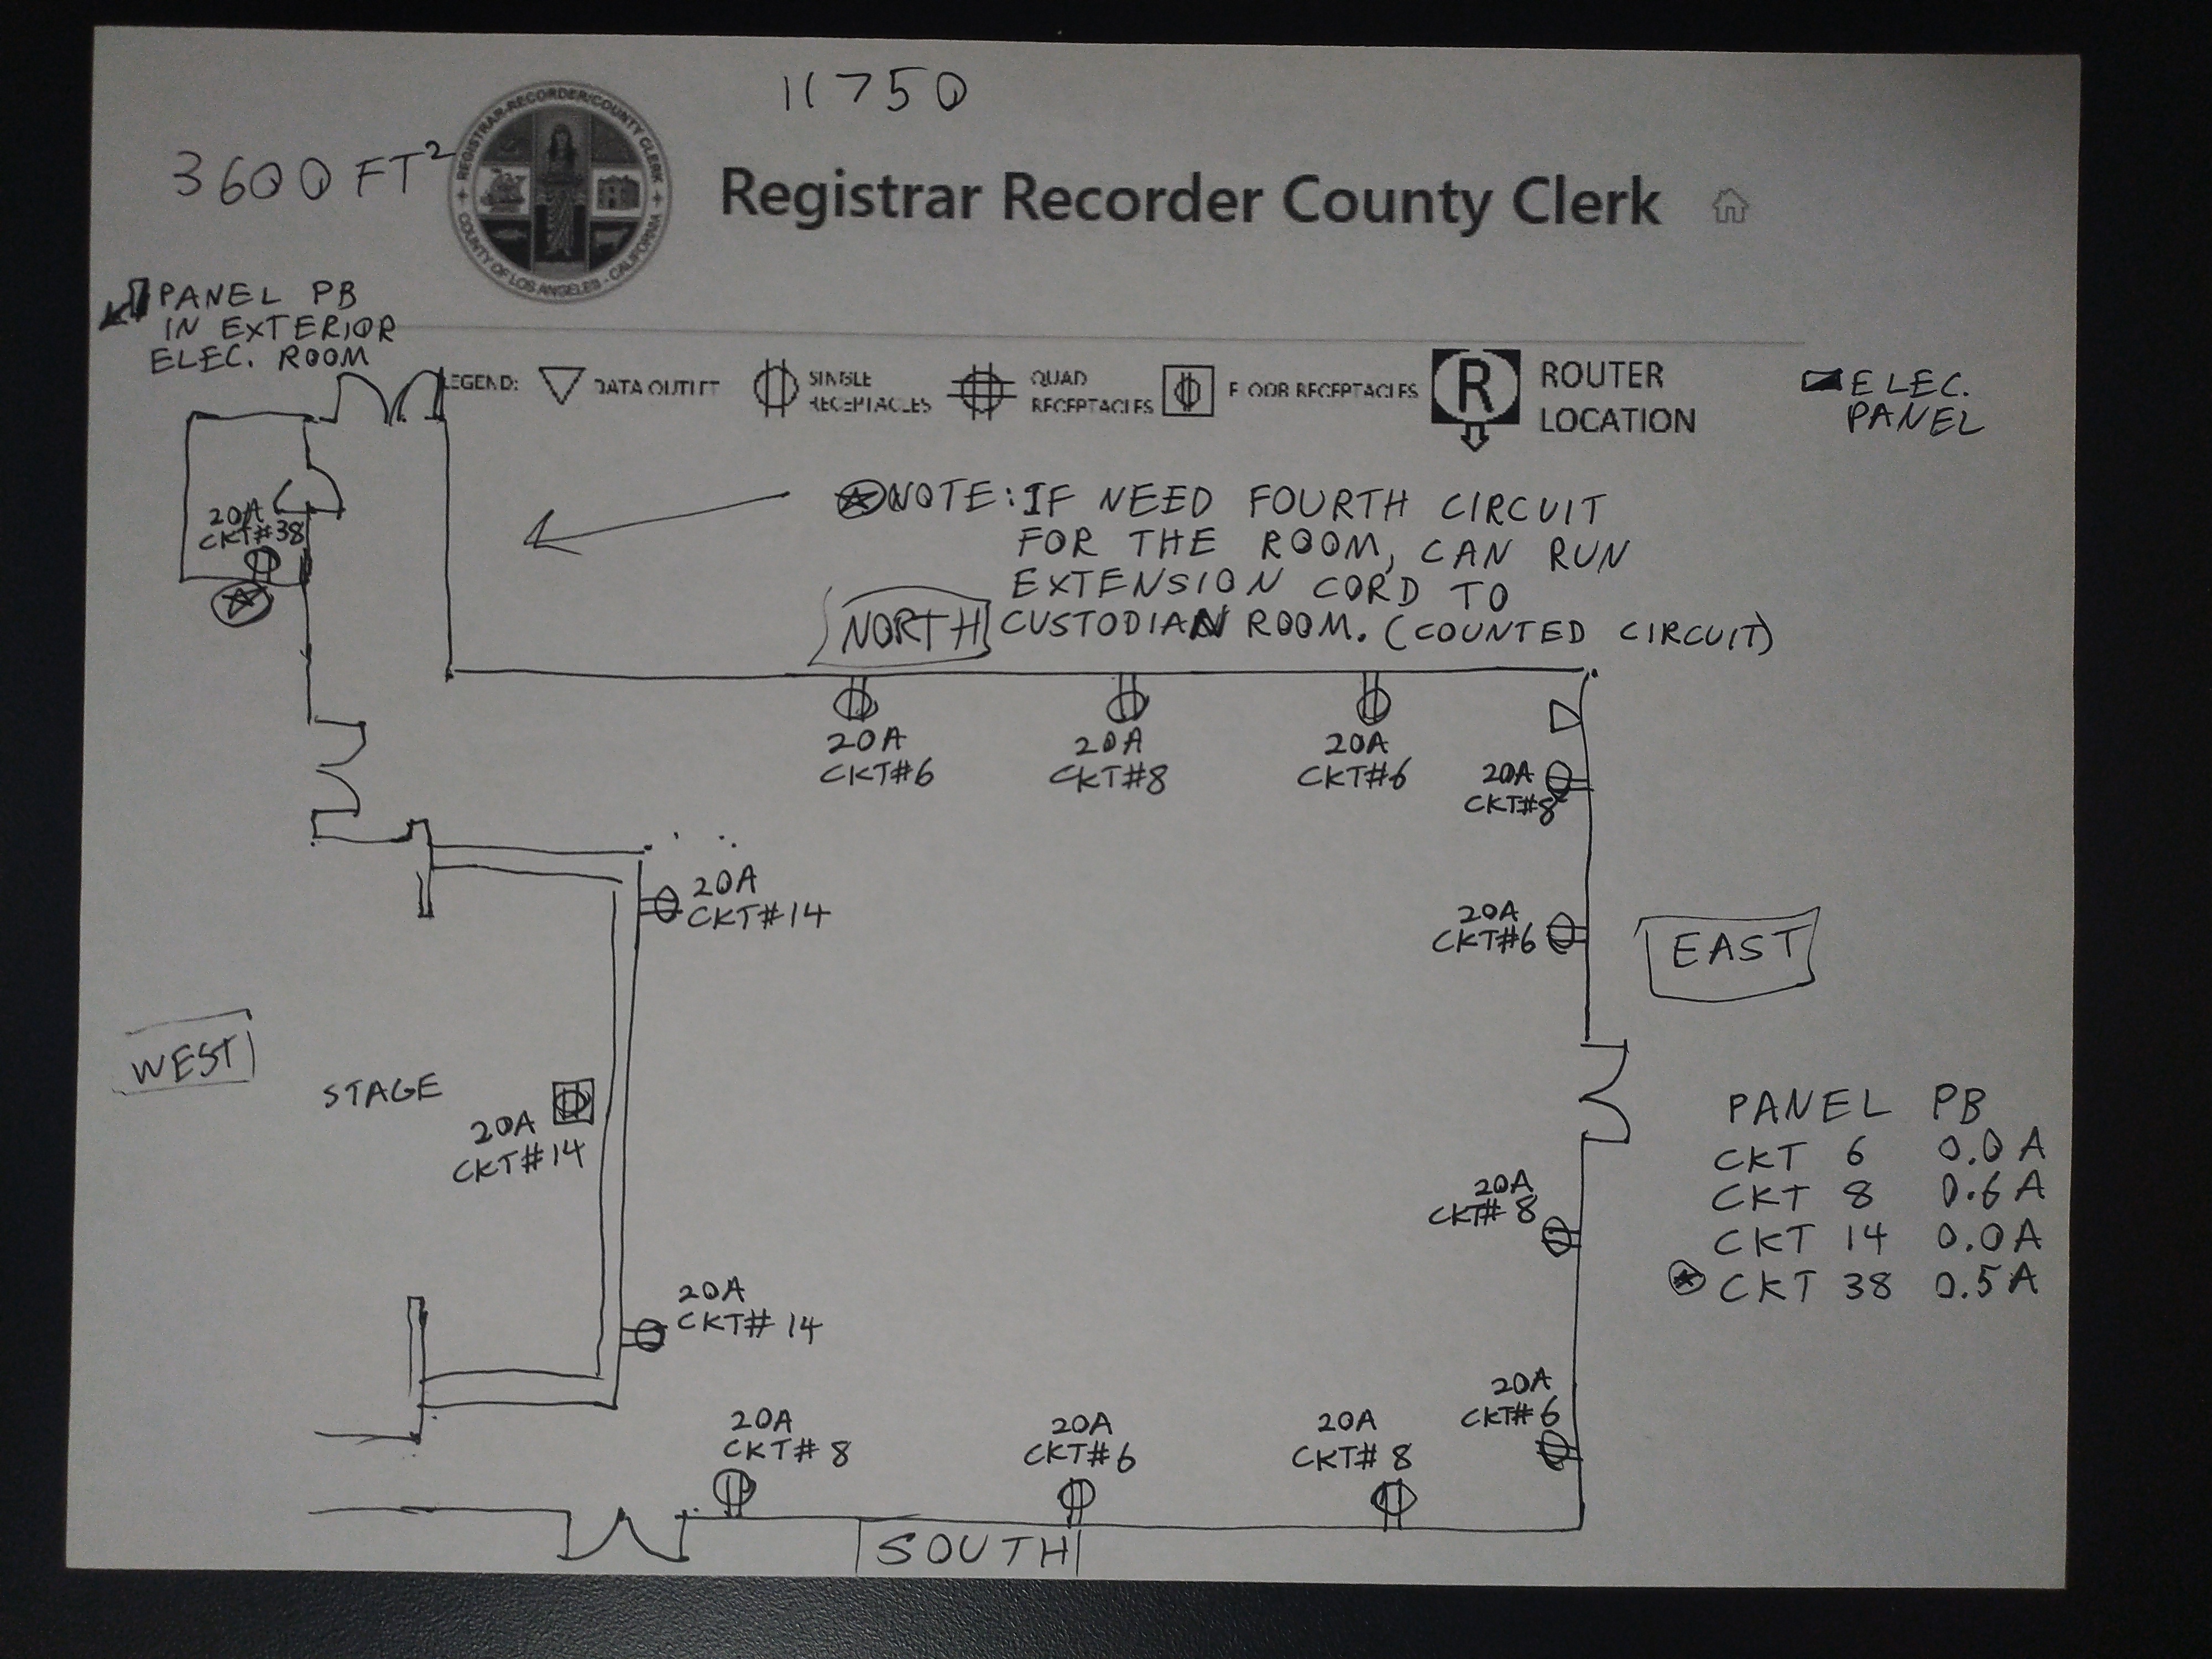 11750
3600 FT²
REGISTRAR-RECORDER/COUNTY CLERK
COUNTY OF LOS ANGELES - CALIFORNIA
Registrar Recorder County Clerk
PANEL PB
IN EXTERIOR
ELEC. ROOM
LEGEND:
DATA OUTLET
SINGLE
RECEPTACLES
QUAD
RECEPTACLES
FLOOR RECEPTACLES
R
ROUTER
LOCATION
ELEC.
PANEL
NOTE: IF NEED FOURTH CIRCUIT
FOR THE ROOM, CAN RUN
EXTENSION CORD TO
CUSTODIAN ROOM. (COUNTED CIRCUIT)
20A
CKT#38
NORTH
20A
CKT#6
20A
CKT#8
20A
CKT#6
20A
CKT#8
20A
CKT#14
20A
CKT#6
EAST
WEST
STAGE
20A
CKT#14
PANEL PB
CKT 6 0.0 A
CKT 8 0.6 A
CKT 14 0.0 A
CKT 38 0.5 A
20A
CKT# 8
20A
CKT# 14
20A
CKT# 6
20A
CKT# 8
20A
CKT#6
20A
CKT# 8
SOUTH